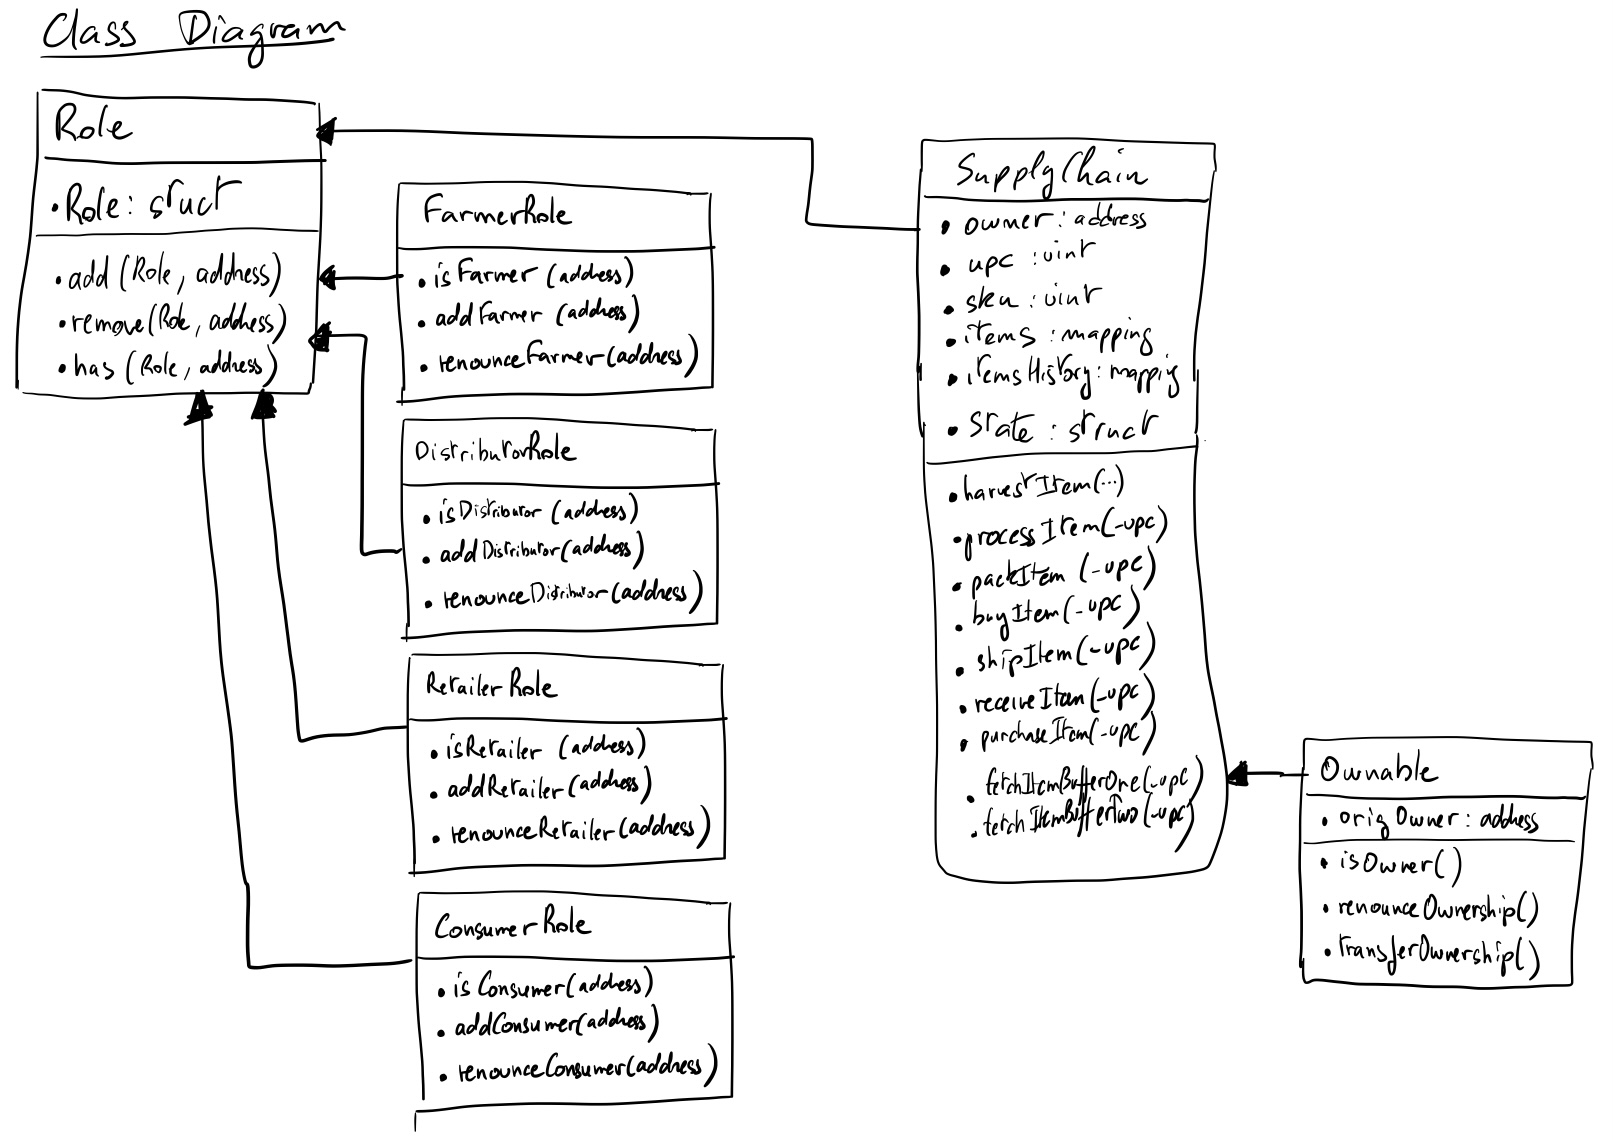 Class Diagram
Role
• Role: struct
• add (Role, address)
• remove(Role, address)
• has (Role, address)
FarmerRole
• isFarmer (address)
• addFarmer (address)
• renounceFarmer(address)
DistributorRole
• isDistributor (address)
• addDistributor(address)
• renounceDistributor(address)
RetailerRole
• isRetailer (address)
• addRetailer(address)
• renounceRetailer(address)
ConsumerRole
• isConsumer(address)
• addConsumer(address)
• renounceConsumer(address)
SupplyChain
• owner: address
• upc : uint
• sku : uint
• items : mapping
• itemsHistory: mapping
• State : struct
• harvestItem(...)
• processItem(-upc)
• packItem (-upc)
• buyItem(-upc)
• shipItem(-upc)
• receiveItem(-upc)
• purchaseItem(-upc)
• fetchItemBufferOne(-upc)
• fetchItemBufferTwo(-upc)
Ownable
• origOwner: address
• isOwner()
• renounceOwnership()
• transferOwnership()